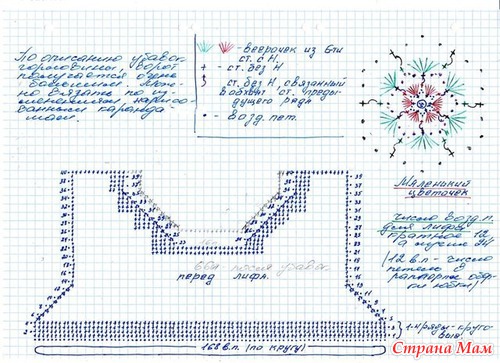 По описанию убавок
горловины, ворот
получается очень
большим. Мож-
но вязать по из-
менениям, нарисо-
ванным каранда-
шом.
- веерочек из 6ти
ст. с Н.
+ - ст. без Н
ст. без Н, связанный
в обхват ст. преды-
дущего ряда
• - возд. пет.
Маленький
цветочек
число возд. п.
для лифа
кратное 12
а лучше 24
(12 в.п. - число
петель в
раппорте
юбки)
66п - после убавок
перед лифа.
1-4 ряды - круго-
вые.
168 в.п. (по кругу)
Страна Мам